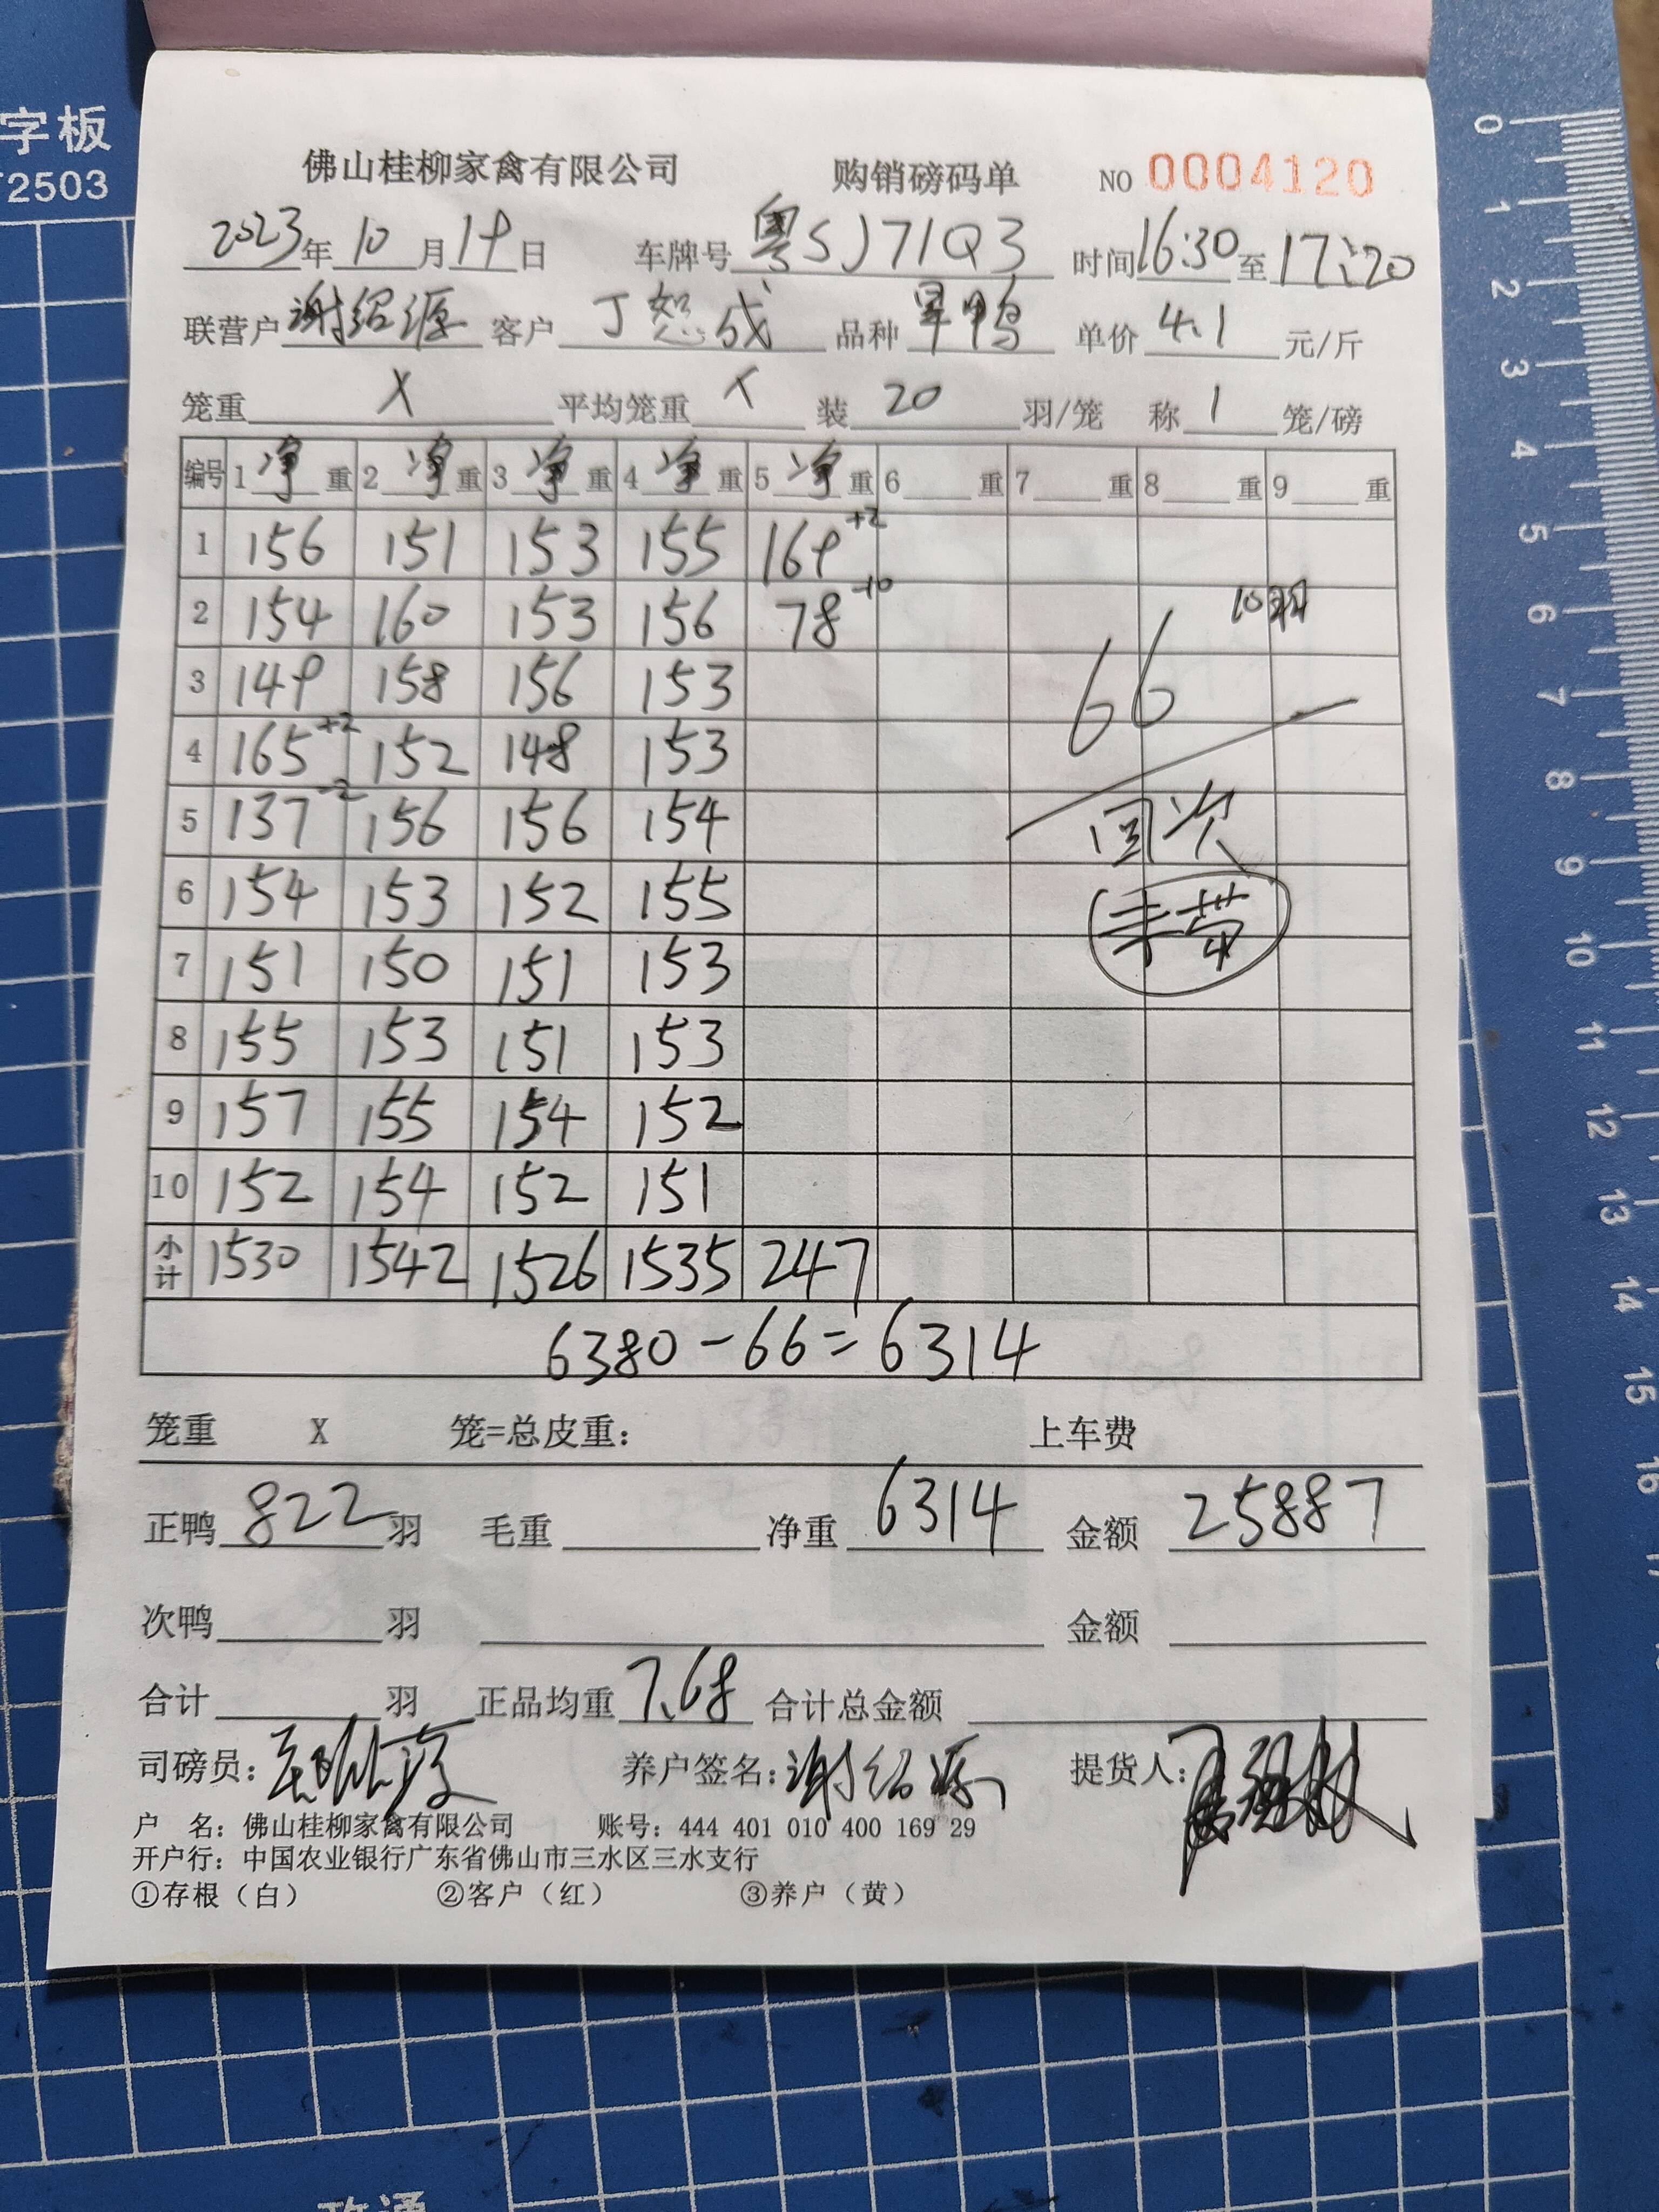 字板
T2503
佛山桂柳家禽有限公司 购销磅码单 NO 0004120
2023年10月19日 车牌号 粤SJ71Q3 时间 16:30 至 17:20
联营户 谢绍源 客户 丁恕成 品种 旱鸭 单价 4.1 元/斤
笼重 X 平均笼重 X 装 20 羽/笼 称 1 笼/磅
编号 1 净 重 2 净 重 3 净 重 4 净 重 5 净 重 6 重 7 重 8 重 9 重
1 156 151 153 155 169 +2
2 154 160 153 156 78 -10 10羽
3 149 158 156 153 66
4 165 +2 152 148 153
5 137 -2 156 156 154 回次
6 154 153 152 155 未带
7 151 150 151 153
8 155 153 151 153
9 157 155 154 152
10 152 154 152 151
小计 1530 1542 1526 1535 247
6380-66=6314
笼重 X 笼=总皮重： 上车费
正鸭 822 羽 毛重 净重 6314 金额 25887
次鸭 羽 金额
合计 羽 正品均重 7.68 合计总金额
司磅员： 养户签名：谢绍源 提货人：
户 名：佛山桂柳家禽有限公司 账号：444 401 010 400 169 29
开户行：中国农业银行广东省佛山市三水区三水支行
①存根（白） ②客户（红） ③养户（黄）
0
1
2
3
4
5
6
7
8
9
10
11
12
13
14
15
16